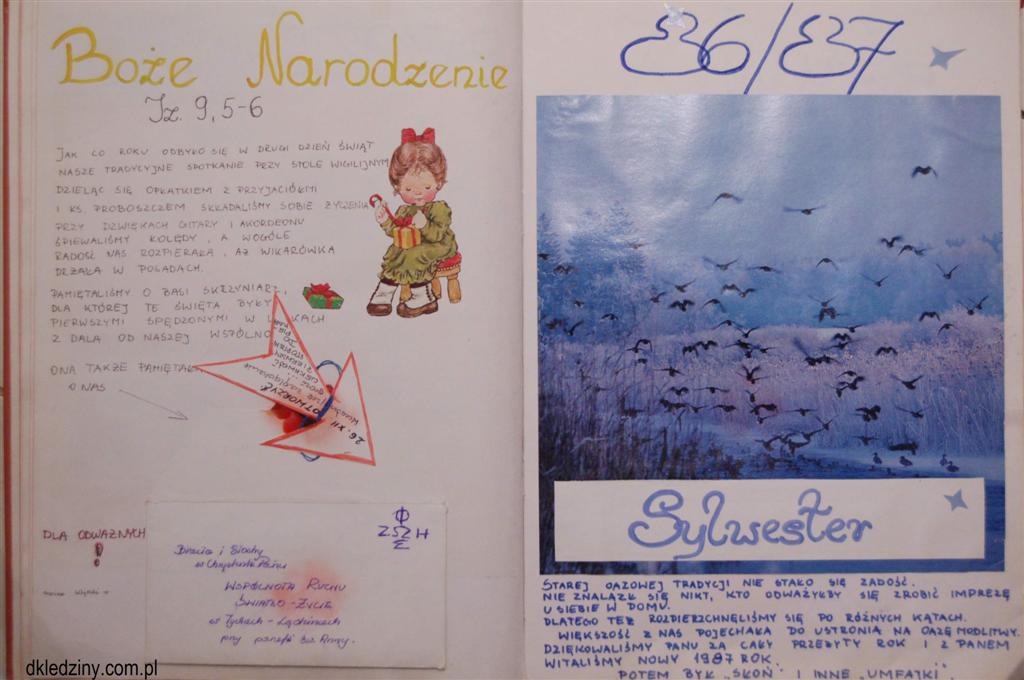 Boże Narodzenie
Iz. 9, 5-6
JAK CO ROKU ODBYŁO SIĘ W DRUGI DZIEŃ ŚWIĄT
NASZE TRADYCYJNE SPOTKANIE PRZY STOLE WIGILIJNYM
DZIELĄC SIĘ OPŁATKIEM Z PRZYJACIÓŁMI
I KS. PROBOSZCZEM SKŁADALIŚMY SOBIE ŻYCZENIA
PRZY DŹWIĘKACH GITARY I AKORDEONU
ŚPIEWALIŚMY KOLĘDY, A WOGÓLE
RADOŚĆ NAS ROZPIERAŁA, AŻ WIKARÓWKA
DRŻAŁA W POSADACH.
PAMIĘTALIŚMY O BASI SKRZYNIARZ,
DLA KTÓREJ TE ŚWIĘTA BYŁY
PIERWSZYMI SPĘDZONYMI W
Z DALA OD NASZEJ
ONA TAKŻE
O NAS
OTWORZYĆ
26.XII
DLA ODWAŻNYCH
!
Φ
ZΩH
Σ
Bracia i Siostry
w Chrystusie Panu
WSPÓLNOTA RUCHU
ŚWIATŁO-ŻYCIE
w Tychach - Lędzinach
przy parafii św. Anny.
dkledziny.com.pl
86/87
Sylwester
STAREJ OAZOWEJ TRADYCJI NIE STAŁO SIĘ ZADOŚĆ.
NIE ZNALAZŁ SIĘ NIKT, KTO ODWAŻYŁBY SIĘ ZROBIĆ IMPREZĘ
U SIEBIE W DOMU.
DLATEGO TEŻ ROZPIERZCHNĘLIŚMY SIĘ PO RÓŻNYCH KĄTACH.
WIĘKSZOŚĆ Z NAS POJECHAŁA DO USTRONIA NA OAZĘ MODLITWY.
DZIĘKOWALIŚMY PANU ZA CAŁY PRZEŻYTY ROK I Z PANEM
WITALIŚMY NOWY 1987 ROK.
POTEM BYŁ „SŁOŃ" I INNE „UMFAJKI".